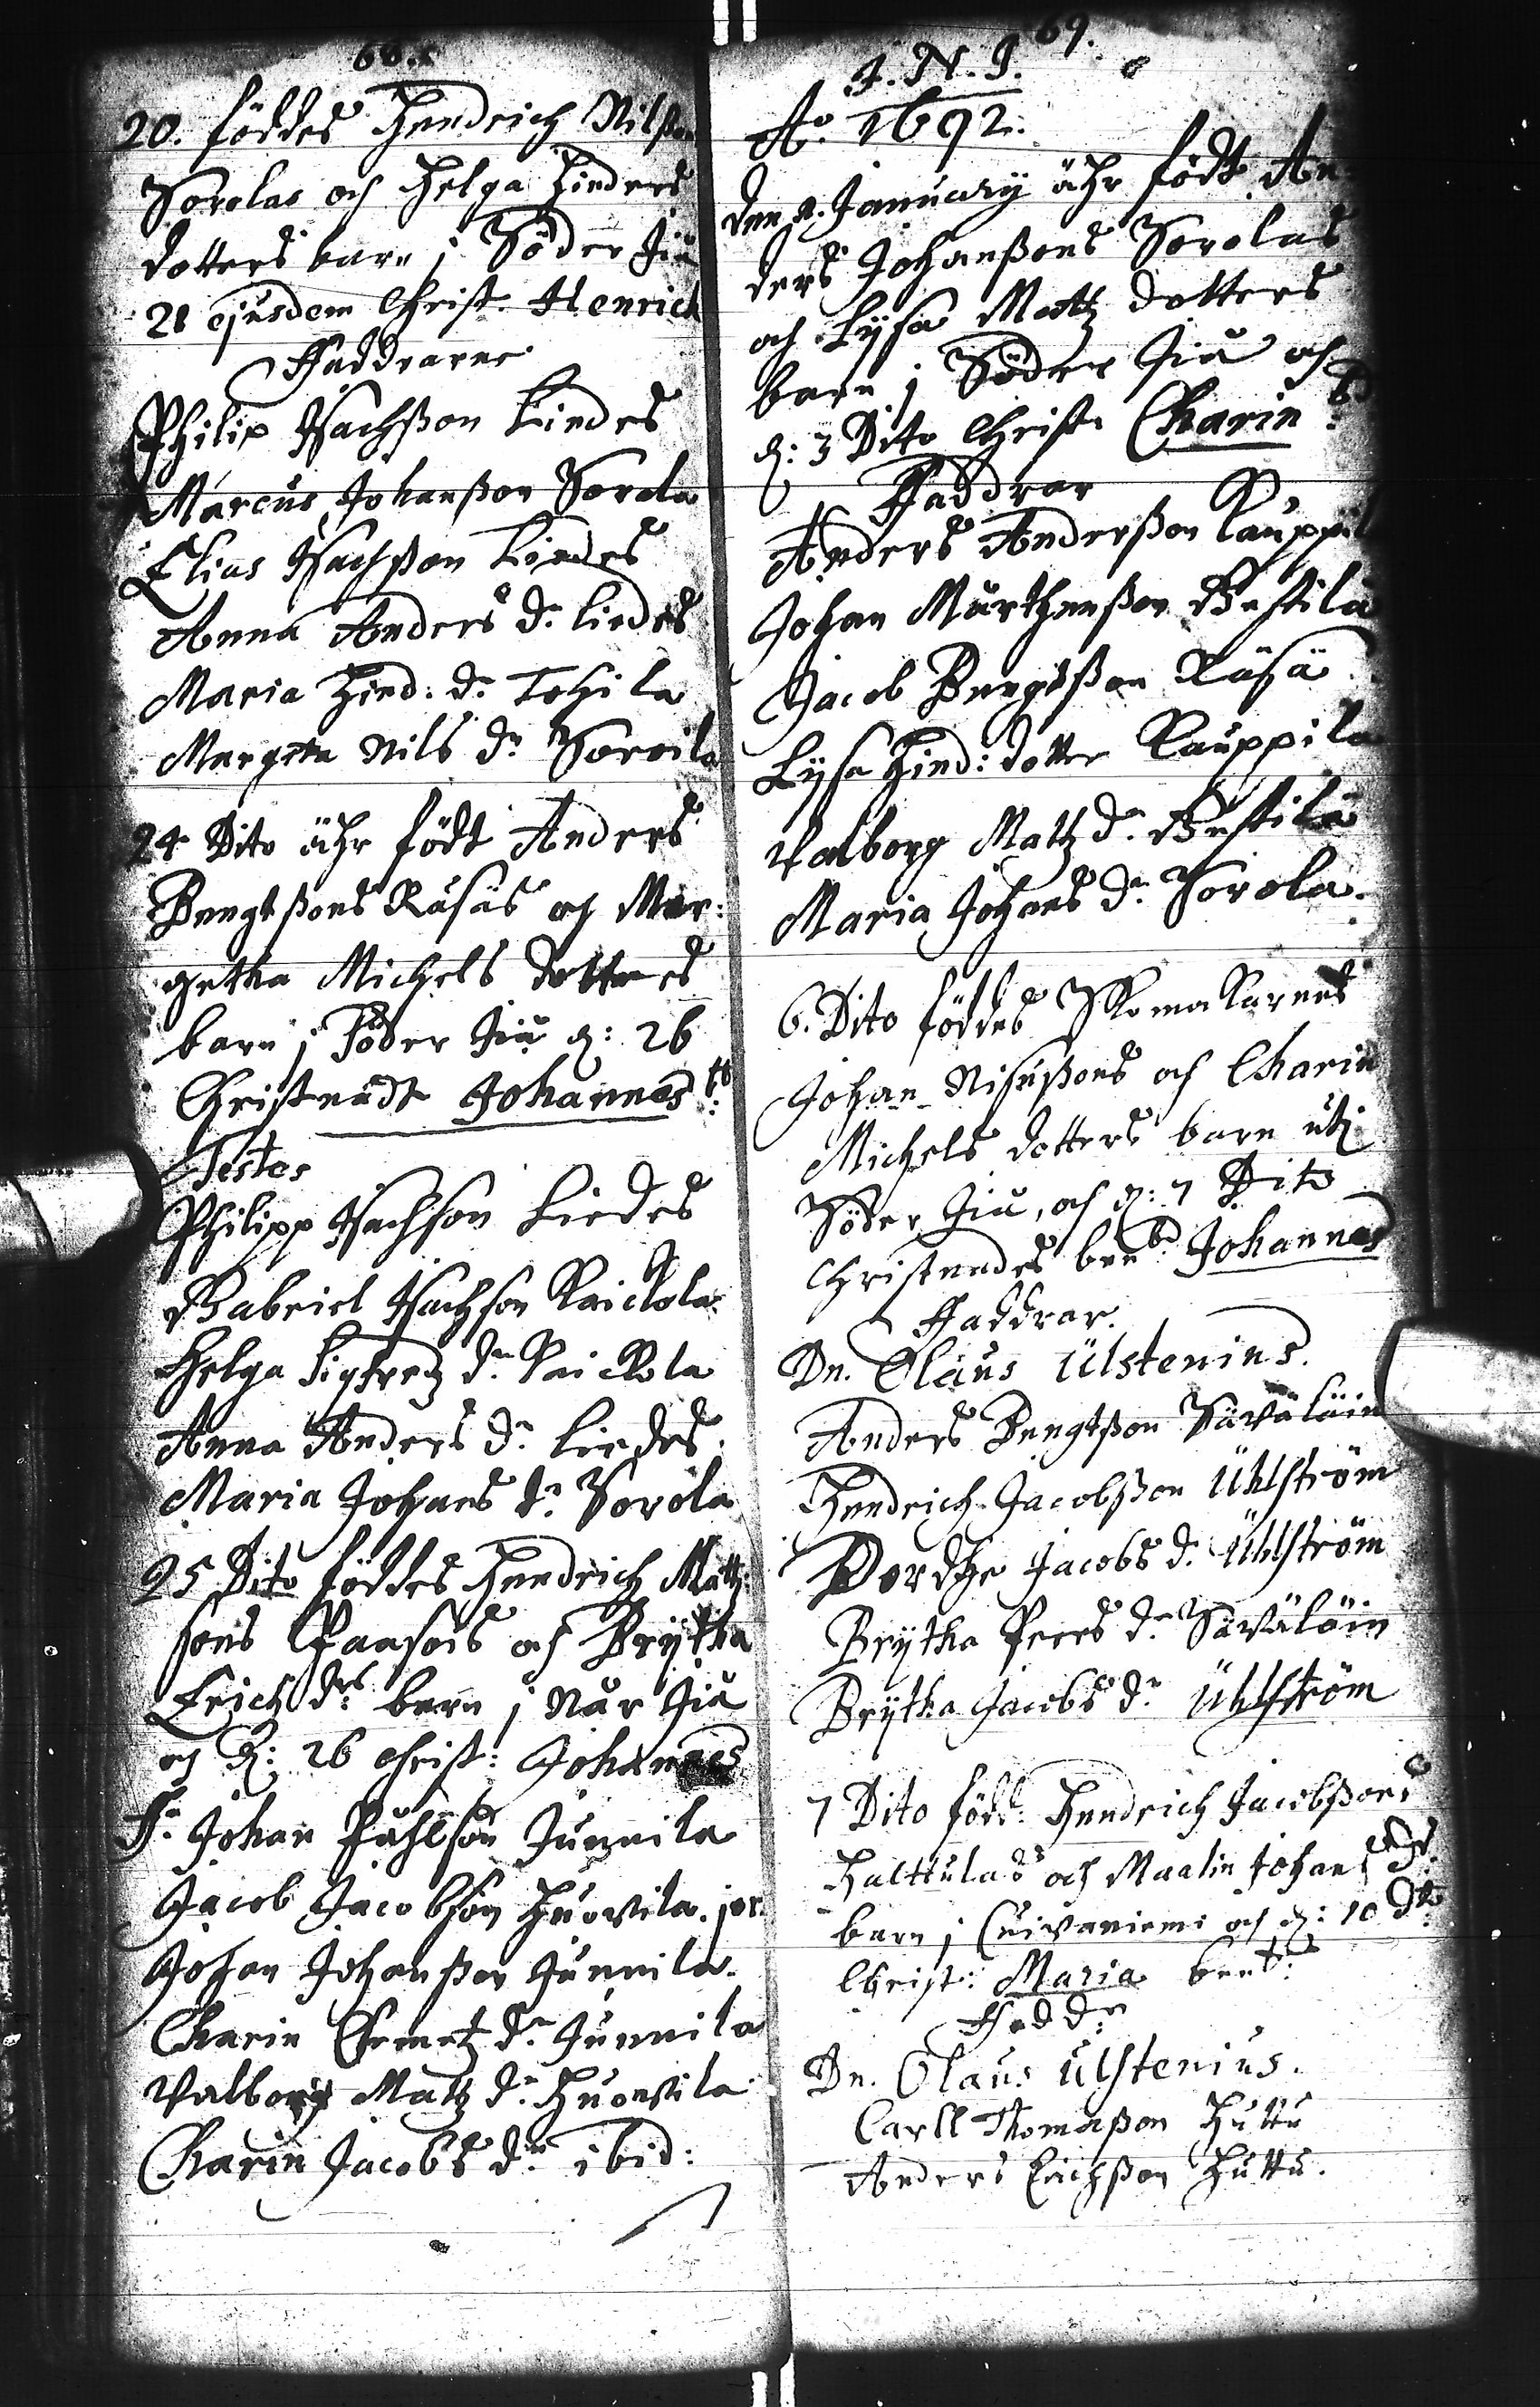 68.
20. föddes Hendrich Nilßon
Sorolas och Helga Hinders
dotters barn j Söder Jiu
21 ejusdem Christ. Henrich
Faddrarne
Philip Isachßon Liedes
Marcus Johanßon Sorola
Elias Isachßon Liedes
Anna Anders dr. Liedes
Maria Hind: dr. Tolzila
Margeta Nils dr. Soroila
24 Dito ähr födt Anders
Bengtßons Räsäs och Mar:
getha Michels dotters
barn j Söder Jiu d: 26
Christnadt Johannes
Testes
Philipp Isachson Liedes
Gabriel Isachson Kaickola
Helga Sigfredz dr. Kaickola
Anna Anders dr. Liedes.
Maria Johans dr. Sorola
25 Dito föddes Hendrich Mattz:
sons Paasois och Brytha
Erichz drs barn j När Jiu
och d: 26 Christ: Johannes
F. Johan Påhlson Junnila
Jacob Jacobson Huovila. jor.
Johan Johanßon Junnila.
Charin Clemetz dr. Junnila
Valborg Matz dr. Huovila
Charin Jacobs dr. ibid:
69.
J. N. J.
Ao. 1692.
Den 2. January ähr födt An-
ders Johanßons Sorolas
och Lysa Mattz dotters
barn j Söder Jiu och
d: 3 Dito Christ. Charin
Faddrar
Anders Anderßon Kauppil
Johan Mårthenßon Bestila
Jacob Bengtßon Räsä
Lysa Hind: dotter Kauppila
Valborg Mattz dr. Bestila
Maria Johans dr. Sorola.
6. Dito föddes Skomakarens
Johan Nilsßons och Charin
Michels dotters barn uti
Söder Jiu, och d: 7 Dito
Christnades ben:d Johannes
Faddrar.
Dn. Olaus Ulstenius.
Anders Bengtßon Säväläin
Hendrich Jacobßon Uhlström
Dordhe Jacobs d. Uhlström
Brytha Peers dr. Säväläin
Brytha Jacobs dr. Uhlström
7 Dito född: Hendrich Jacobßons
Halttulas och Maalin Johans dr.
barn j Cuivaniemi och d: 10 Dto
Christ: Maria bent:
Faddr
Dn. Olaus Ulstenius.
Carll Thomaßon Huttu
Anders Erichßon Huttu.